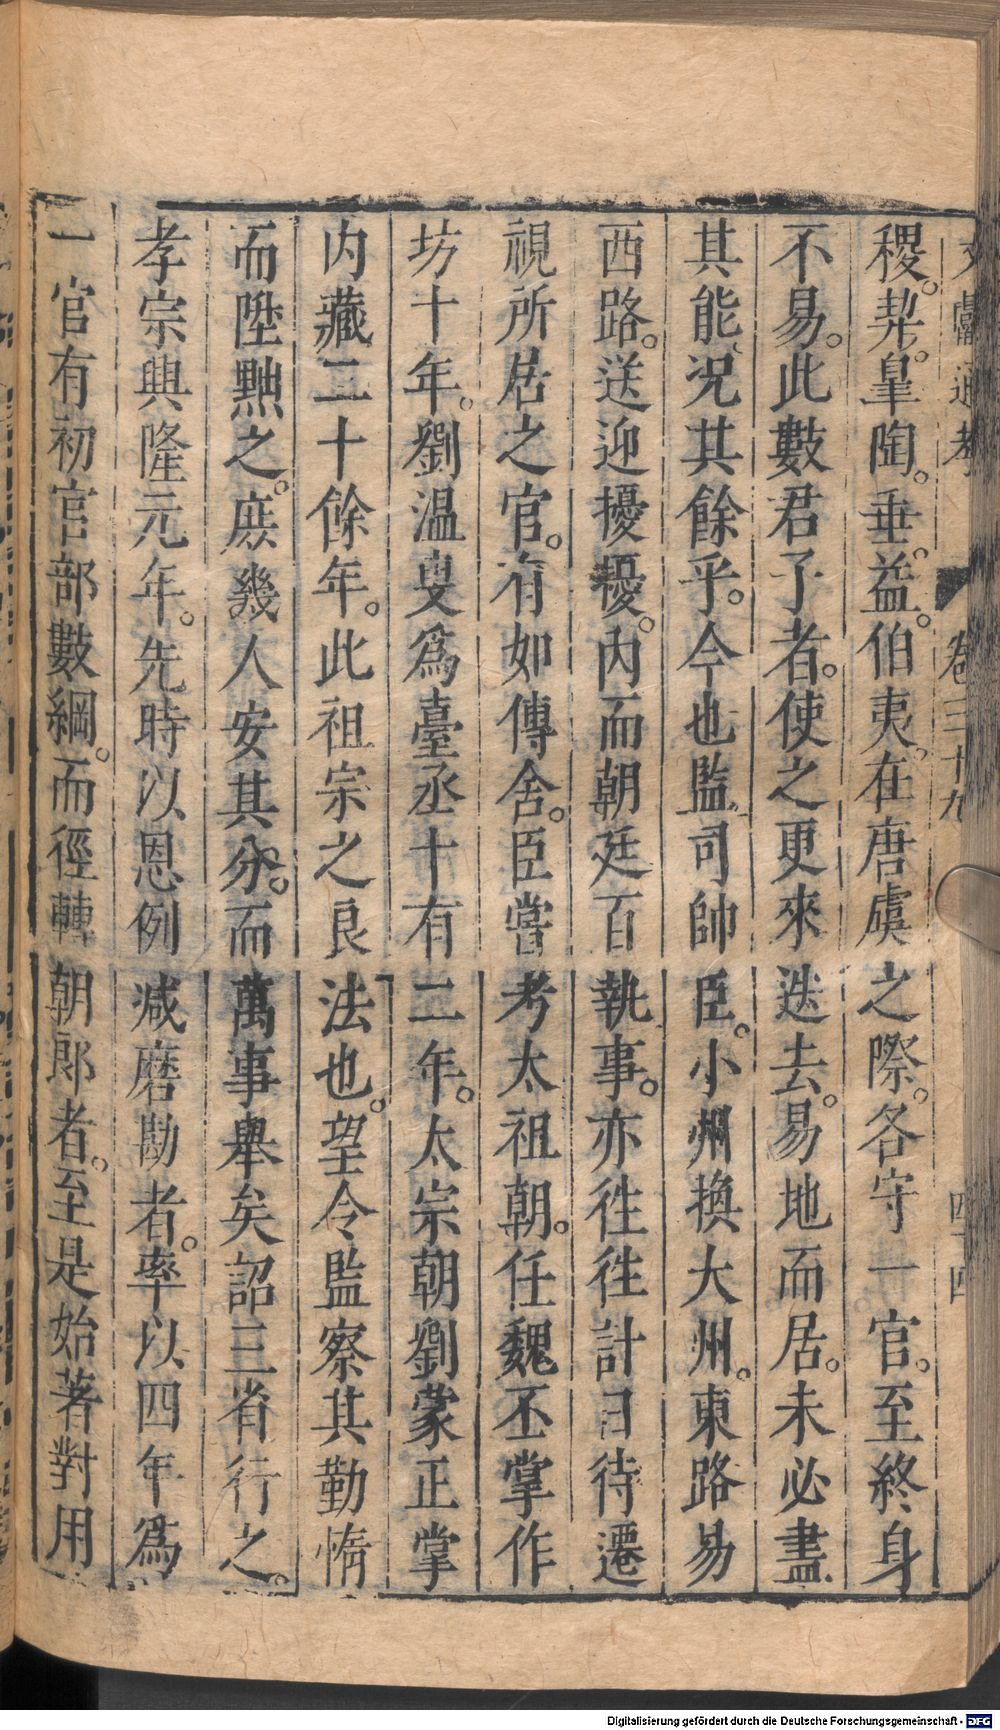 文獻通考 卷三十九 四十四
稷。契。皐陶。垂。益。伯夷。在唐虞之際。各守一官。至終身
不易。此數君子者。使之更來迭去。易地而居。未必盡
其能、況其餘乎。今也監司帥臣。小州換大州。東路易
西路。送迎擾擾。内而朝廷百執事。亦徃徃計日待遷
視所居之官。有如傳舍。臣嘗考太祖朝。任魏丕掌作
坊十年。劉温叟爲臺丞十有二年。太宗朝劉蒙正掌
内藏二十餘年。此祖宗之良法也。望令監察其勤惰
而陞黜之。庶幾人安其分。而萬事舉矣詔三省行之。
孝宗興隆元年。先時以恩例减磨勘者。率以四年爲
一官有初官部數綱。而徑轉朝郎者。至是始著對用
Digitalisierung gefördert durch die Deutsche Forschungsgemeinschaft - DFG